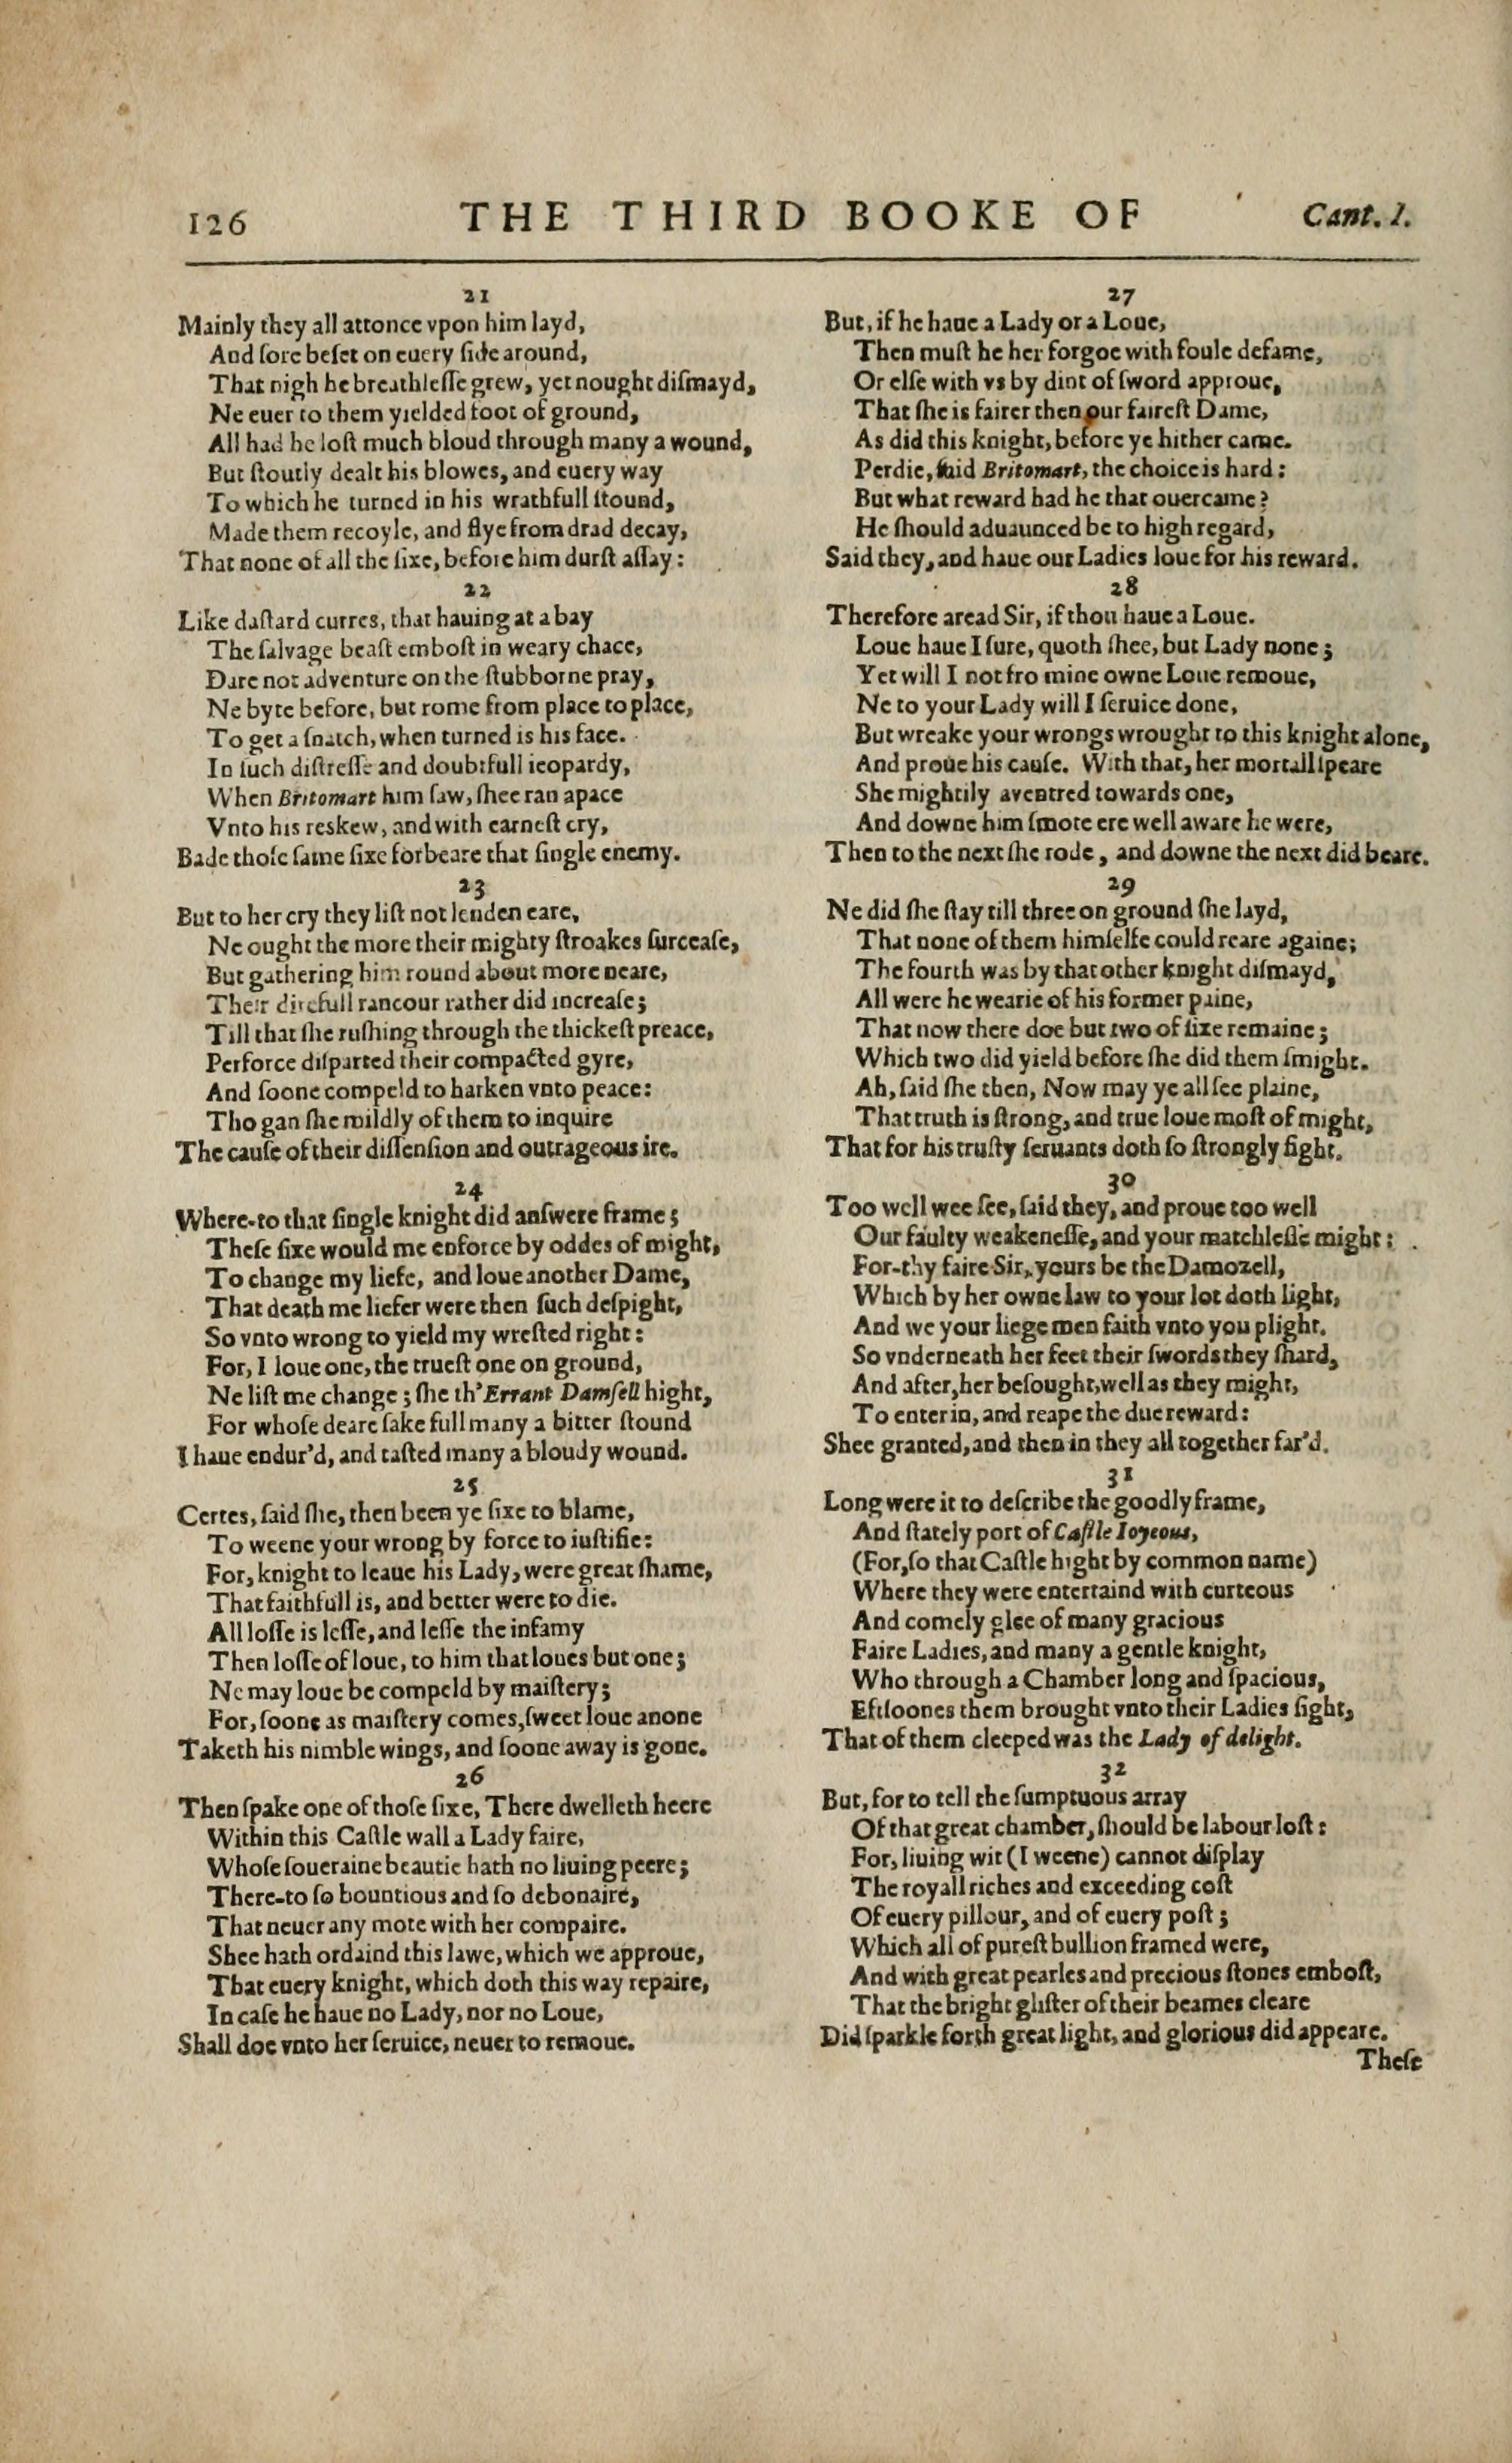 126 THE THIRD BOOKE OF Cant. I.
21
Mainly they all attonce vpon him layd,
And ſore beſet on euery ſide around,
That nigh he breathleſſe grew, yet nought diſmayd,
Ne euer to them yielded foot of ground,
All had he loſt much bloud through many a wound,
But ſtoutly dealt his blowes, and euery way
To which he turned in his wrathfull ſtound,
Made them recoyle, and flye from drad decay,
That none of all the ſixe, before him durſt aſſay:
22
Like daſtard curres, that hauing at a bay
The ſalvage beaſt emboſt in weary chace,
Dare not adventure on the ſtubborne pray,
Ne byte before, but rome from place to place,
To get a ſnatch, when turned is his face.
In ſuch diſtreſſe and doubtfull ieopardy,
When Britomart him ſaw, ſhee ran apace
Vnto his reskew, and with earneſt cry,
Bade thoſe ſame ſixe forbeare that ſingle enemy.
23
But to her cry they liſt not lenden eare,
Ne ought the more their mighty ſtroakes ſurceaſe,
But gathering him round about more neare,
Their direfull rancour rather did increaſe;
Till that ſhe ruſhing through the thickeſt preace,
Perforce diſparted their compacted gyre,
And ſoone compeld to harken vnto peace:
Tho gan ſhe mildly of them to inquire
The cauſe of their diſſenſion and outrageous ire.
24
Where-to that ſingle knight did anſwere frame;
Theſe ſixe would me enforce by oddes of might,
To change my liefe, and loue another Dame,
That death me liefer were then ſuch deſpight,
So vnto wrong to yield my wreſted right:
For, I loue one, the trueſt one on ground,
Ne liſt me change; ſhe th'Errant Damſell hight,
For whoſe deare ſake full many a bitter ſtound
I haue endur'd, and taſted many a bloudy wound.
25
Certes, ſaid ſhe, then been ye ſixe to blame,
To weene your wrong by force to iuſtifie:
For, knight to leaue his Lady, were great ſhame,
That faithfull is, and better were to die.
All loſſe is leſſe, and leſſe the infamy
Then loſſe of loue, to him that loues but one;
Ne may loue be compeld by maiſtery;
For, ſoone as maiſtery comes, ſweet loue anone
Taketh his nimble wings, and ſoone away is gone.
26
Then ſpake one of thoſe ſixe, There dwelleth heere
Within this Caſtle wall a Lady faire,
Whoſe ſoueraine beautie hath no liuing peere;
There-to ſo bountious and ſo debonaire,
That neuer any mote with her compaire.
Shee hath ordaind this lawe, which we approue,
That euery knight, which doth this way repaire,
In caſe he haue no Lady, nor no Loue,
Shall doe vnto her ſeruice, neuer to remoue.
27
But, if he haue a Lady or a Loue,
Then muſt he her forgoe with foule defame,
Or elſe with vs by dint of ſword approue,
That ſhe is fairer then our faireſt Dame,
As did this knight, before ye hither came.
Perdie, ſaid Britomart, the choice is hard:
But what reward had he that ouercame?
He ſhould aduaunced be to high regard,
Said they, and haue our Ladies loue for his reward.
28
Therefore aread Sir, if thou haue a Loue.
Loue haue I ſure, quoth ſhee, but Lady none;
Yet will I not fro mine owne Loue remoue,
Ne to your Lady will I ſeruice done,
But wreake your wrongs wrought to this knight alone,
And proue his cauſe. With that, her mortall ſpeare
She mightily aventred towards one,
And downe him ſmote ere well aware he were,
Then to the next ſhe rode, and downe the next did beare.
29
Ne did ſhe ſtay till three on ground ſhe layd,
That none of them himſelfe could reare againe;
The fourth was by that other knight diſmayd,
All were he wearie of his former paine,
That now there doe but two of ſixe remaine;
Which two did yield before ſhe did them ſmight.
Ah, ſaid ſhe then, Now may ye all ſee plaine,
That truth is ſtrong, and true loue moſt of might,
That for his truſty ſeruants doth ſo ſtrongly fight.
30
Too well wee ſee, ſaid they, and proue too well
Our faulty weakeneſſe, and your matchleſſe might:
For-thy faire Sir, yours be the Damozell,
Which by her owne law to your lot doth light,
And we your liege men faith vnto you plight.
So vnderneath her feet their ſwords they ſhard,
And after, her beſought, well as they might,
To enter in, and reape the due reward:
Shee granted, and then in they all together far'd.
31
Long were it to deſcribe the goodly frame,
And ſtately port of Caſtle Ioyeous,
(For, ſo that Caſtle hight by common name)
Where they were entertaind with curteous
And comely glee of many gracious
Faire Ladies, and many a gentle knight,
Who through a Chamber long and ſpacious,
Eftſoones them brought vnto their Ladies ſight,
That of them cleeped was the Lady of delight.
32
But, for to tell the ſumptuous array
Of that great chamber, ſhould be labour loſt:
For, liuing wit (I weene) cannot diſplay
The royall riches and exceeding coſt
Of euery pillour, and of euery poſt;
Which all of pureſt bullion framed were,
And with great pearles and precious ſtones emboſt,
That the bright gliſter of their beames cleare
Did ſparkle forth great light, and glorious did appeare.
Theſe